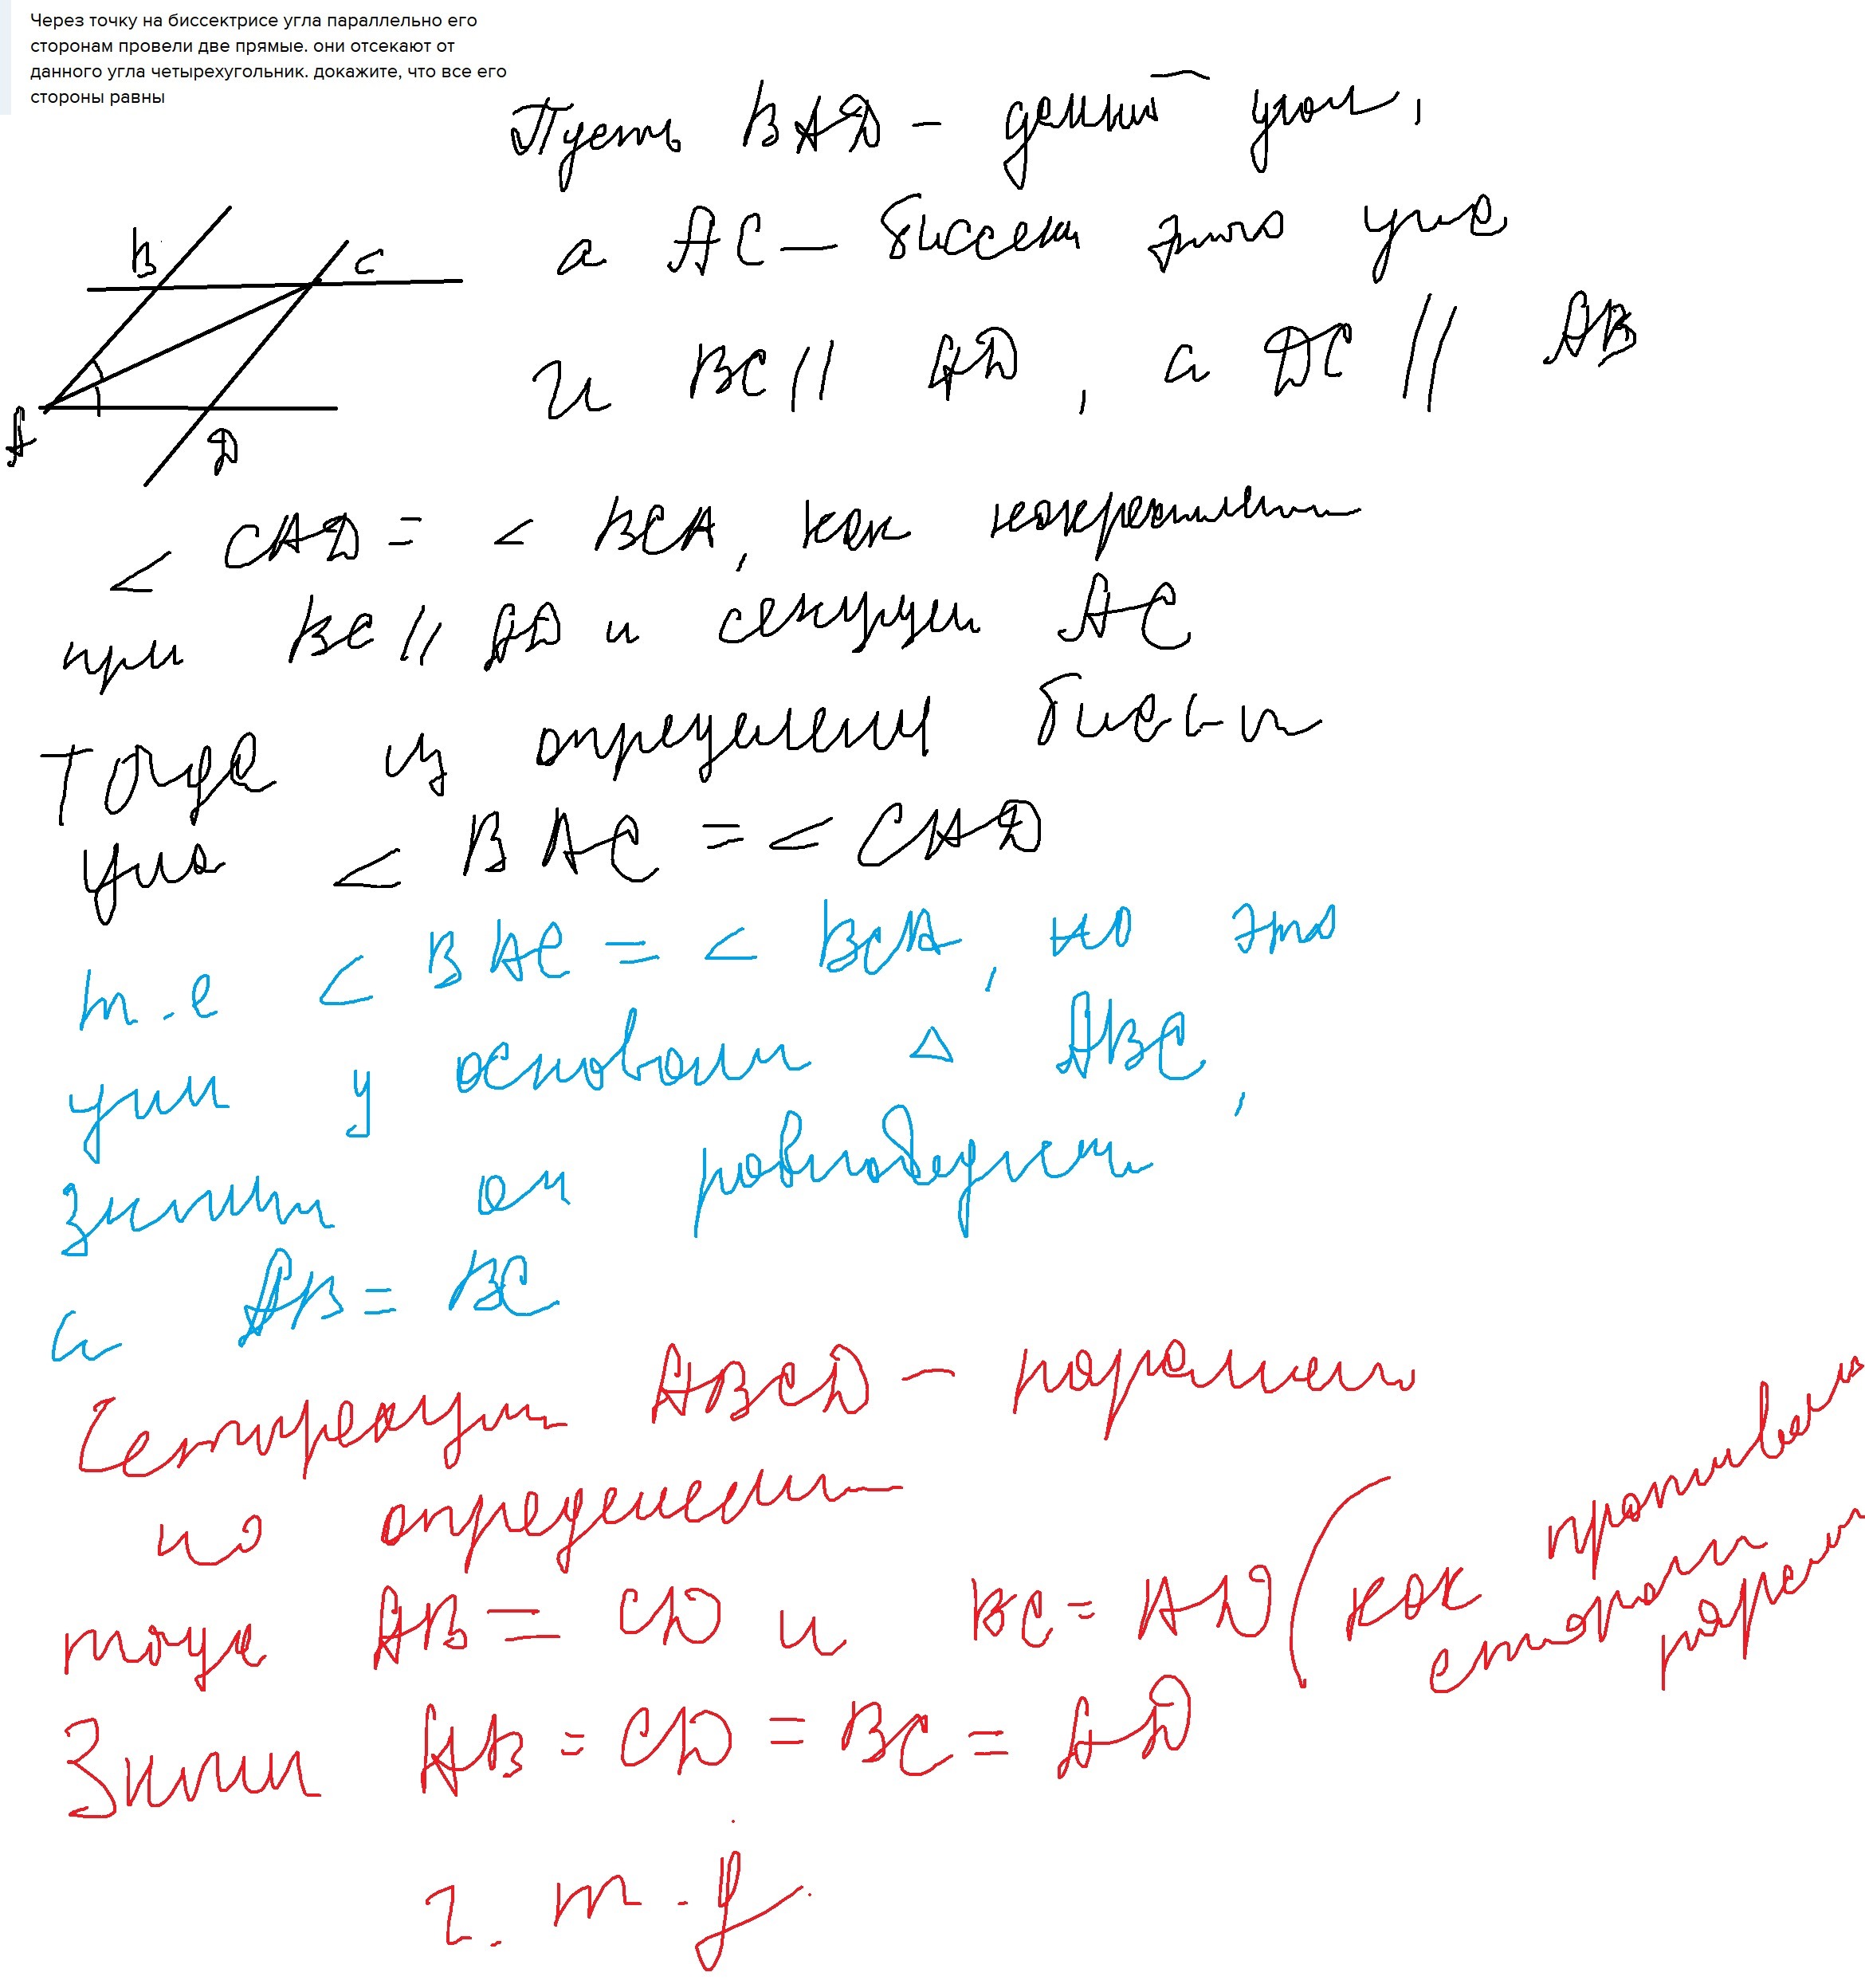 Через точку на биссектрисе угла параллельно его
сторонам провели две прямые. они отсекают от
данного угла четырехугольник. докажите, что все его
стороны равны
Пусть BAD - данный угол,
а AC - биссек этого угла
и BC || AD, а DC || AB
B
C
A
D
< CAD = < BCA, как накрестлежащ
при BC || AD и секущей AC
Тогда из определения бисс-ы
угла < BAC = < CAD
т.е < BAC = < BCA, но это
углы у основания △ ABC,
значит он равнобедрен
и AB = BC
Четырехуг ABCD - параллел
по определению
тогда AB = CD и BC = AD (как противолеж
сторон
паралл
Значит AB = CD = BC = AD
ч.т.д.